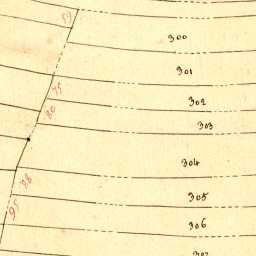 59
300
301
75
302
80
303
304
38
305
95
306
307